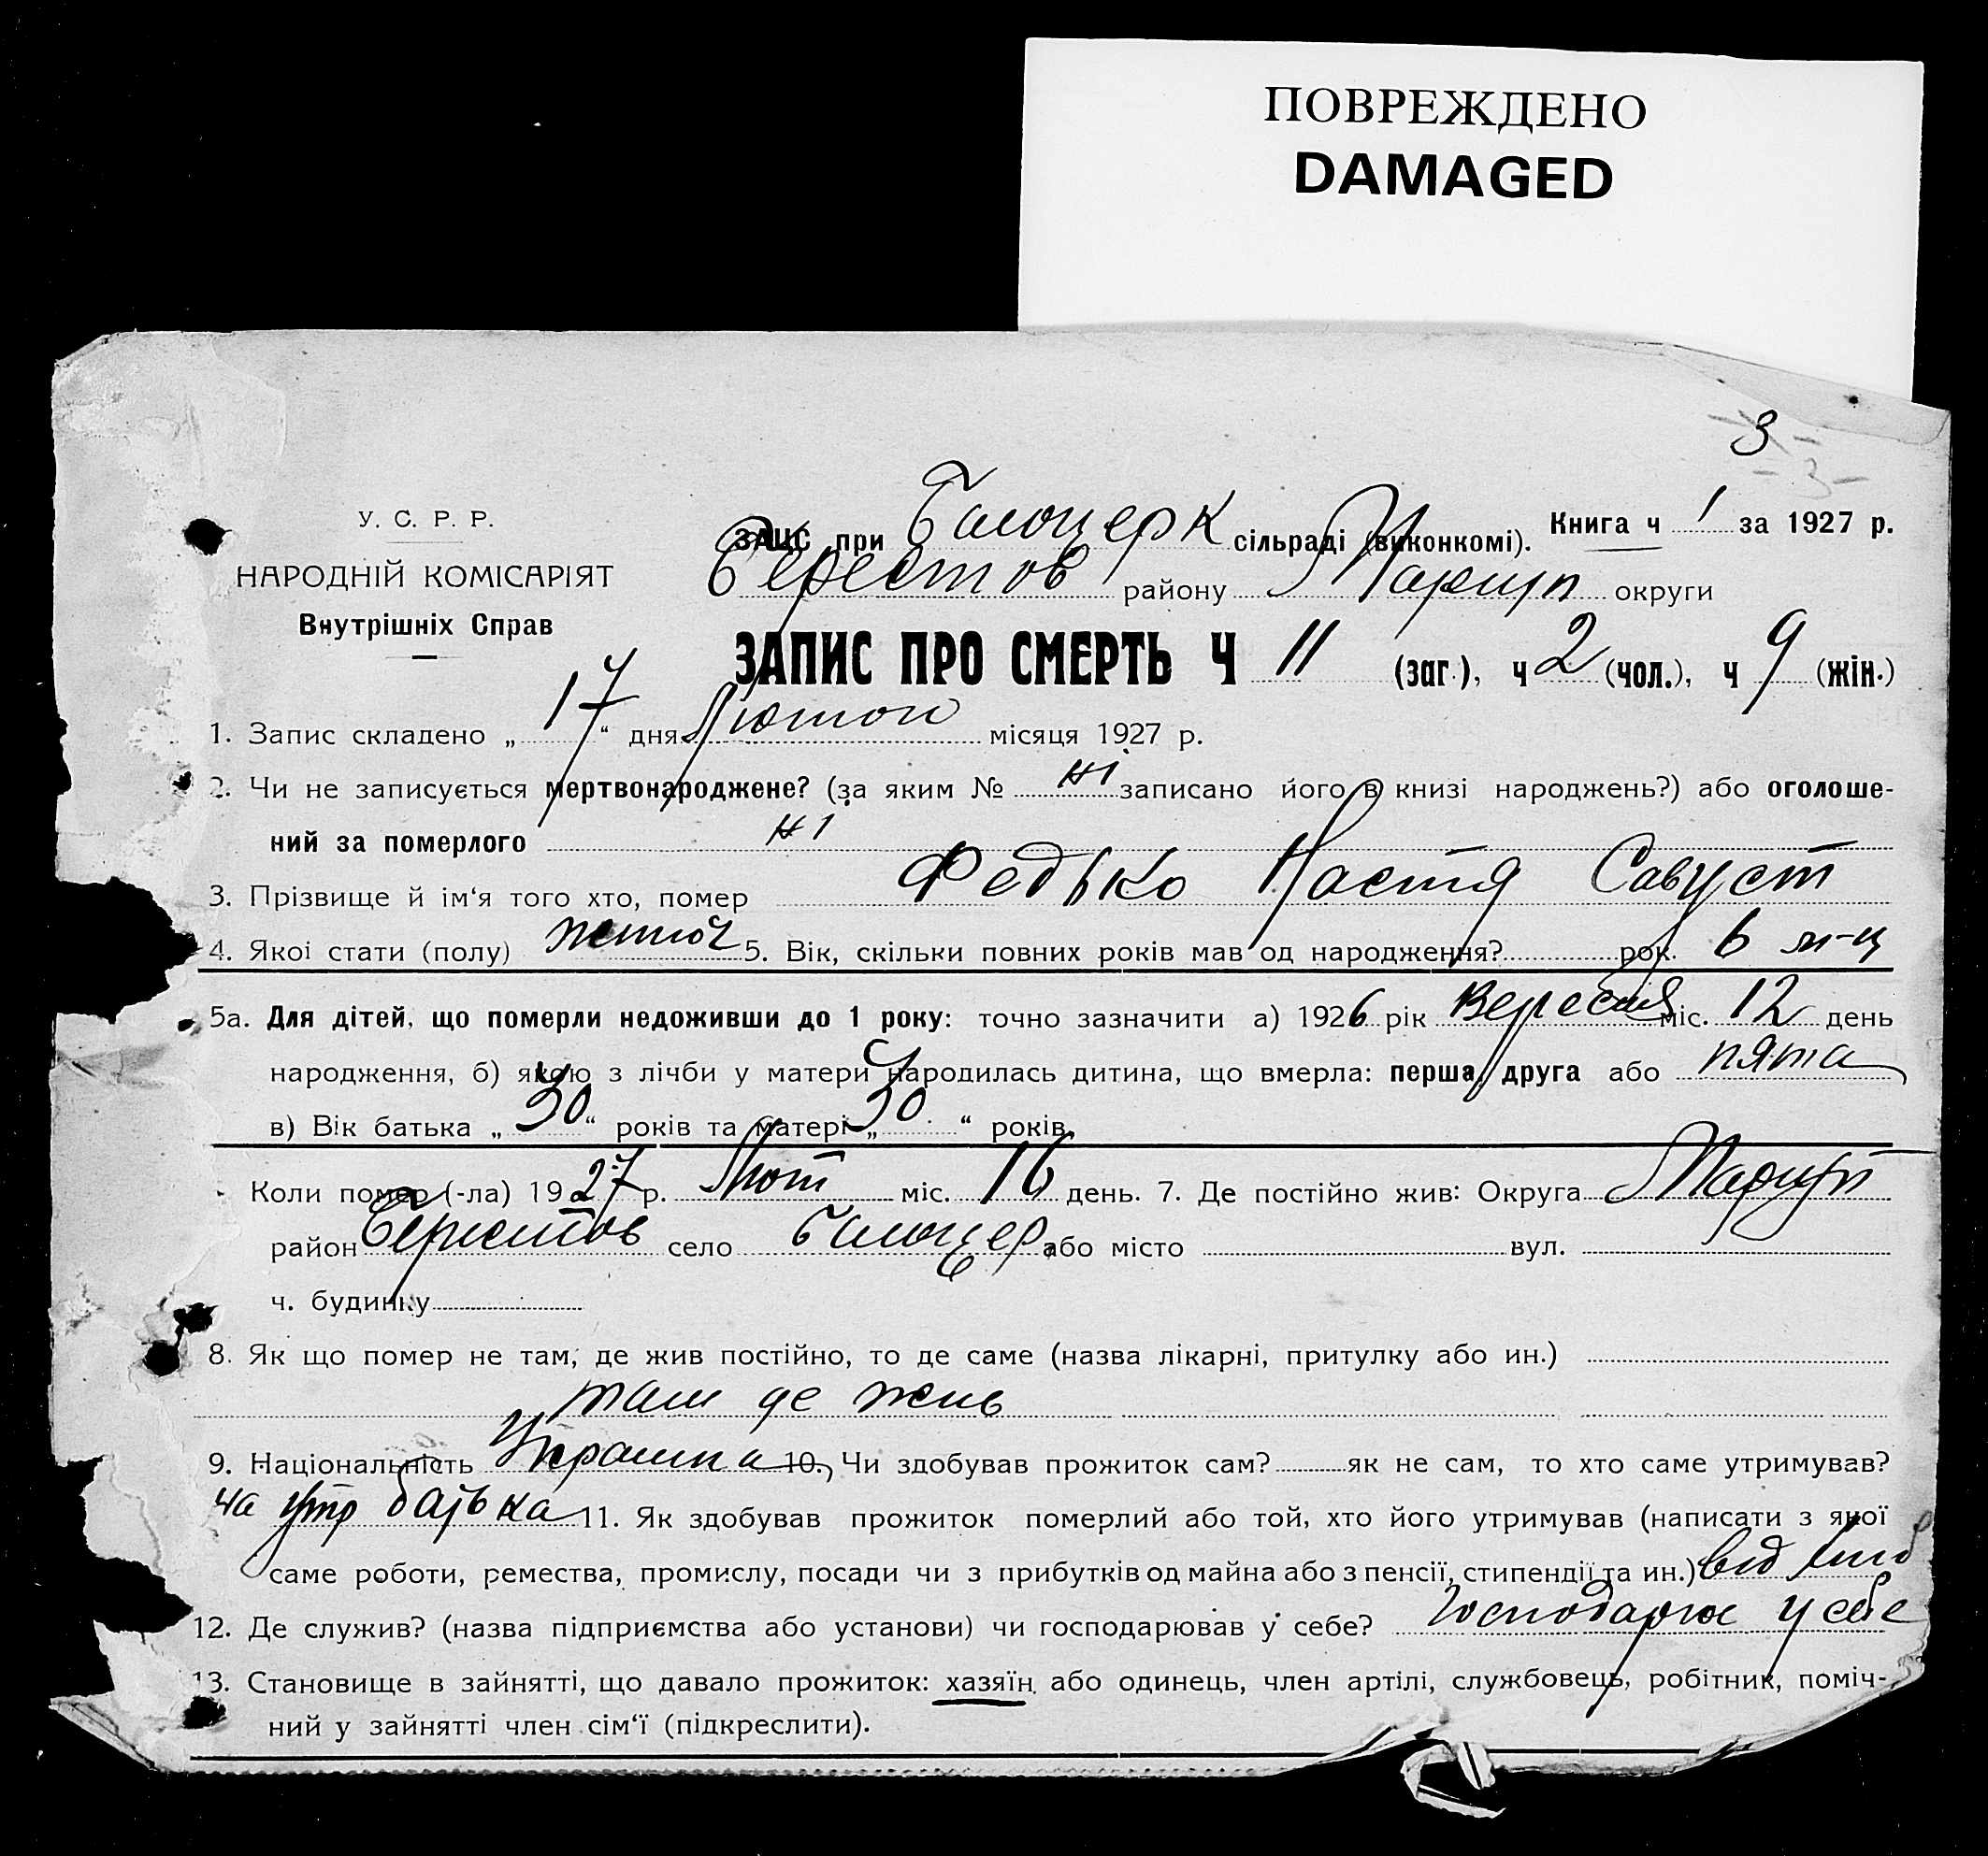 ПОВРЕЖДЕНО
DAMAGED
3
- 3 -
У. С. Р. Р.
НАРОДНІЙ КОМІСАРІЯТ
Внутрішніх Справ
ЗАЦС при Білоцерк сільраді (виконкомі). Книга ч 1 за 1927 р.
Берестов району Маріуп округи
ЗАПИС ПРО СМЕРТЬ Ч 11 (заг.), ч 2 (чол.), ч 9 (жін.)
1. Запис складено „ 17 “ дня Лютого місяця 1927 р.
2. Чи не записується мертвонароджене? (за яким № ні записано його в книзі народжень?) або оголоше-
ний за померлого ні
3. Прізвище й ім‘я того хто, помер Федько Настя Савуст
4. Якої стати (полу) жиноч 5. Вік, скільки повних років мав од народження? рок. 6 м-ц
5а. Для дітей, що померли недоживши до 1 року: точно зазначити а) 1926 рік Вересня міс. 12 день
народження, б) якою з лічби у матери народилась дитина, що вмерла: перша, друга або пята
в) Вік батька „ 30 “ років та матері „ 30 “ років.
Коли помер (-ла) 1927 р. Лют міс. 16 день. 7. Де постійно жив: Округа Маріуп
район Берестов село Білоцер або місто вул.
ч. будинку
8. Як що помер не там, де жив постійно, то де саме (назва лікарні, притулку або ин.)
там де жив
9. Національність Українка 10. Чи здобував прожиток сам? як не сам, то хто саме утримував?
на утр батька 11. Як здобував прожиток померлий або той, хто його утримував (написати з якої
саме роботи, ремества, промислу, посади чи з прибутків од майна або з пенсії, стипендії та ин.) від хліб
12. Де служив? (назва підприємства або установи) чи господарював у себе? Господарює у себе
13. Становище в зайнятті, що давало прожиток: хазяїн або одинець, член артілі, службовець, робітник, поміч-
ний у зайнятті член сім‘ї (підкреслити).